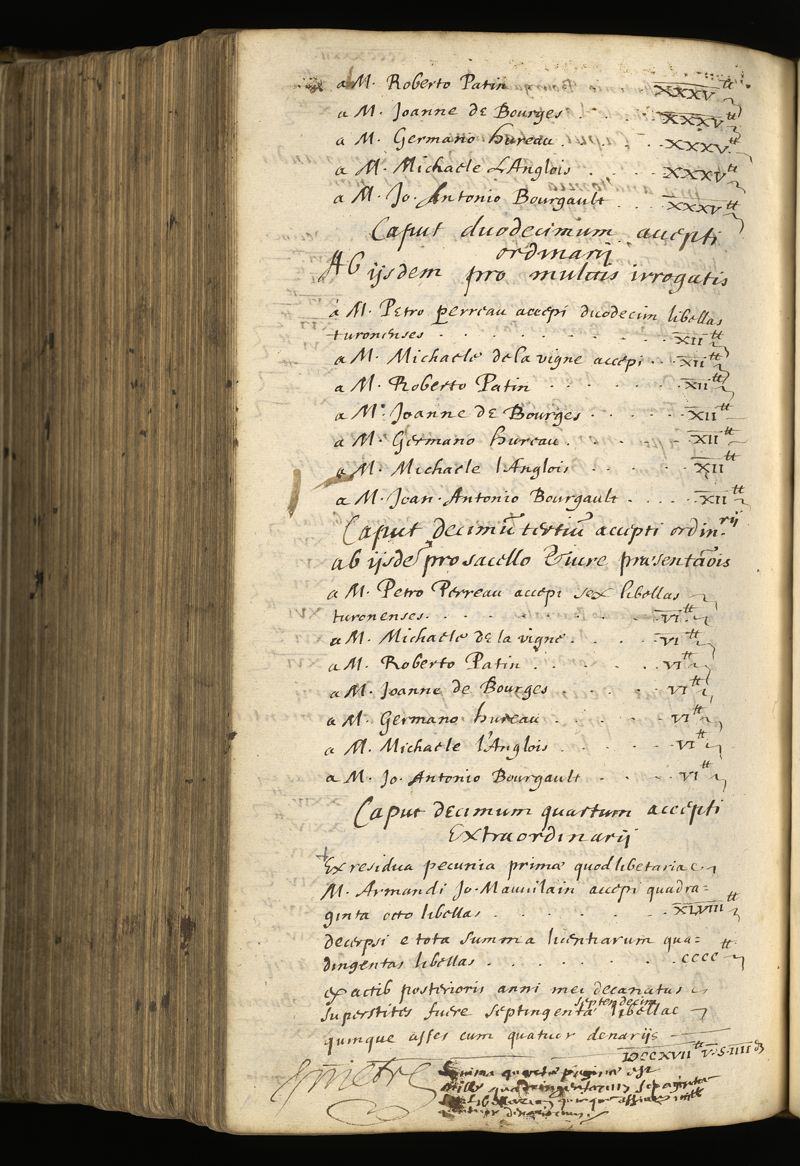 a M. Roberto Patin XXXV tt
a M. Joanne de Bourges . . . XXXV tt
a M. Germano hureau . . . XXXV tt
a M. Michaele L'Anglois . . . XXXV tt
a M. Jo. Antonio Bourgault . . . . XXXV tt
Caput duodecimum accepti
ordinarij
Ab ijsdem pro mulctis irrogatis
a M. Petro perreau accepi duodecim libellas
turonenses . . . . . . . . . XII tt
a M. Michaele de la vigne accepi . . . XII tt
a M. Roberto Patin . . . . . XII tt
a M. Joanne de Bourges . . . . . XII tt
a M. Germano hureau . . . . XII tt
a M. Michaele l'Anglois . . . . XII tt
a M. Joan. Antonio Bourgault . . . . . XII tt
Caput decimũ tertiũ accepti ordin.rij
ab ijsdẽ pro sacello & iure præsentãois
a M. Petro Perreau accepi sex libellas
turonenses . . . . . . . . VI tt
a M. Michaele de la vigne . . . . VI tt
a M. Roberto Patin . . . . . VI tt
a M. Joanne de Bourges . . . . VI tt
a M. Germano hureau . . . . VI tt
a M. Michaele l'Anglois . . . . . VI tt
a M. Jo. Antonio Bourgault . . . . VI tt
Caput decimum quartum accepti
Extraordinarij
Ex residua pecunia primæ quodlibetariæ
M. Armandi Jo. Mauvilain accepi quadra=
ginta octo libellas . . . . . . XLVIII tt
decerpsi e tota summa licentiarum qua=
dingentas libellas . . . . . . . cccc tt
ex actib posterioris anni mei decanatus
superstites fuere septingentæ septemdecim libellae
quinque asses cum quatuor denarijs
DCCXVII tt V. S. IIII d
Summa quartæ paginæ est
mille quadringentarum septuaginta
libellarum quinque assium
quatuor denariorum.